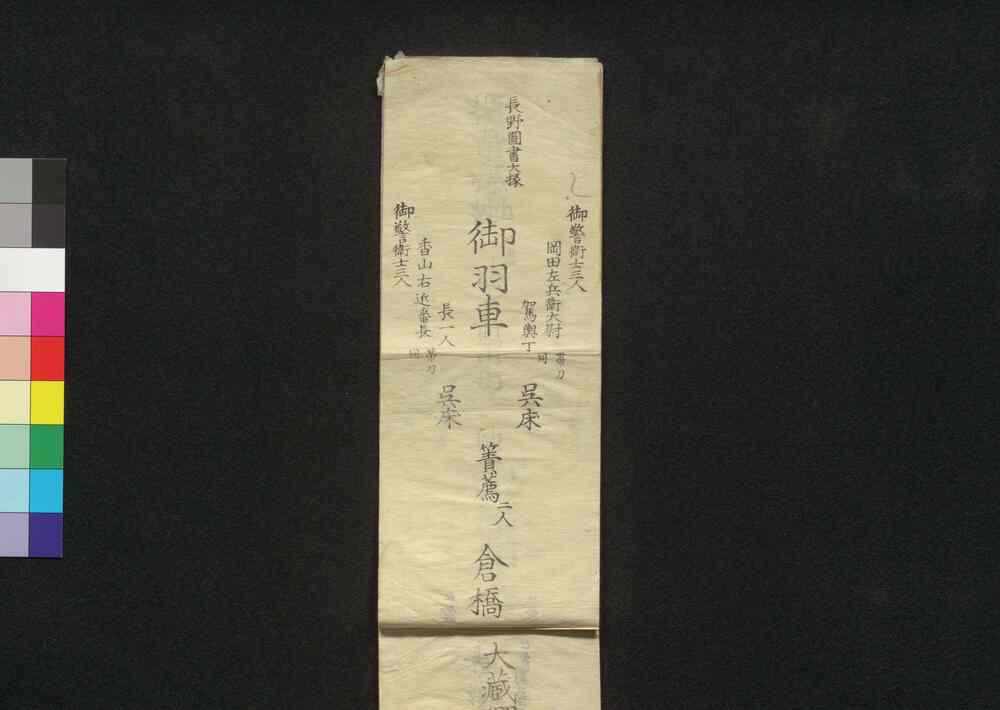 長野圖書大掾
御警衛士三人
岡田左兵衛大尉
帯刀
同
駕輿丁
御羽車
長一人
香山右近番長
帯刀
同
御警衛士三人
呉床
呉床
簀薦二人
倉橋
大藏